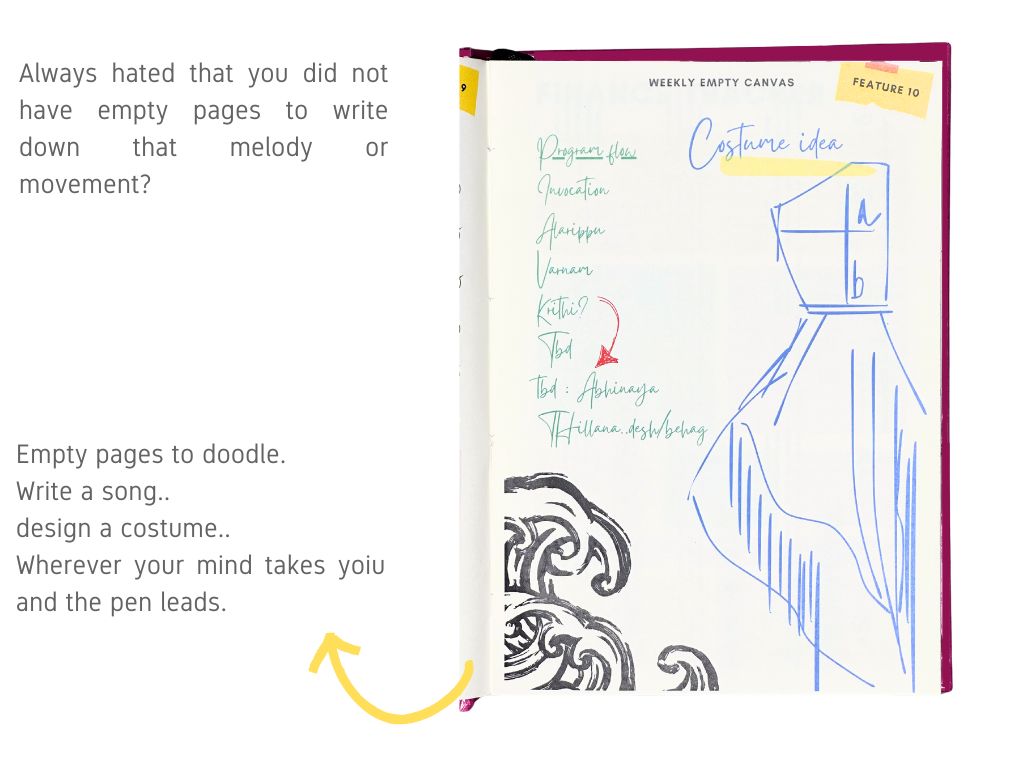 Always hated that you did not
have empty pages to write
down that melody or
movement?
Empty pages to doodle.
Write a song..
design a costume..
Wherever your mind takes yoiu
and the pen leads.
9
WEEKLY EMPTY CANVAS
FEATURE 10
Costume idea
Program flow
Invocation
Alarippu
Varnam
Krithi?
Tbd
Tbd : Abhinaya
THillana..desh/behag
a
b